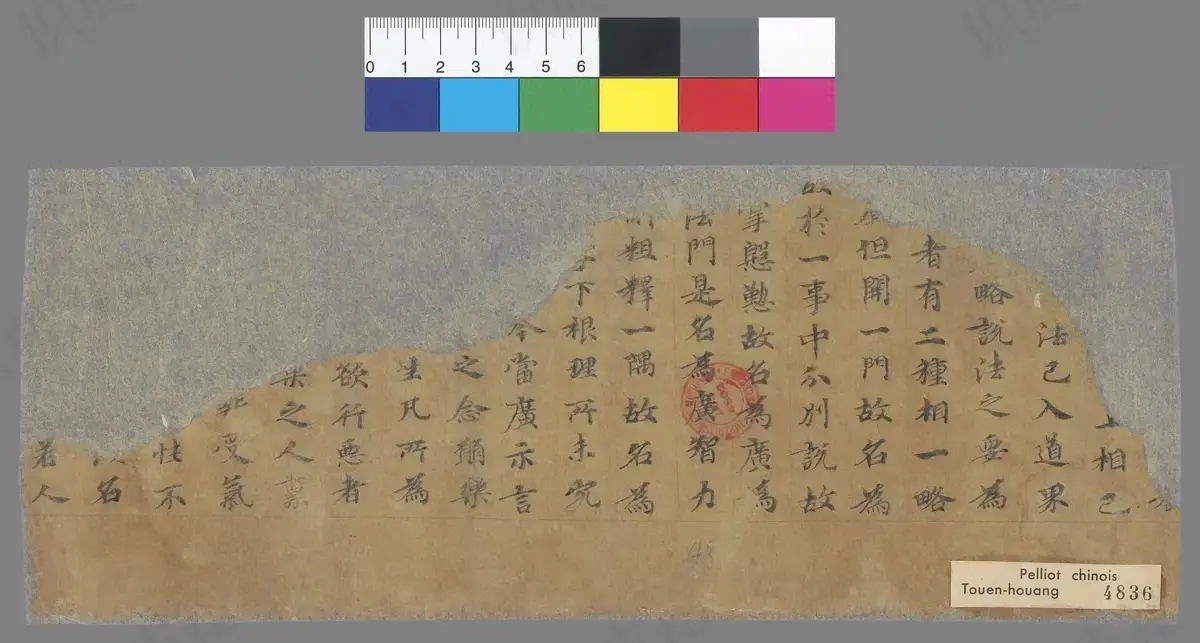 相已
法已入道果
略説法之要為
者有二種相一略
但開一門故名為
於一事中分別説故
掌慇懃故名為廣為
法門是名為廣智力
粗釋一隅故名為
下根理所未究
今當廣示言
之念猶樂
生凡所為
欲行惡者
之人禀
受氣
性不
名
若人
0 1 2 3 4 5 6
Pelliot chinois
Touen-houang 4836